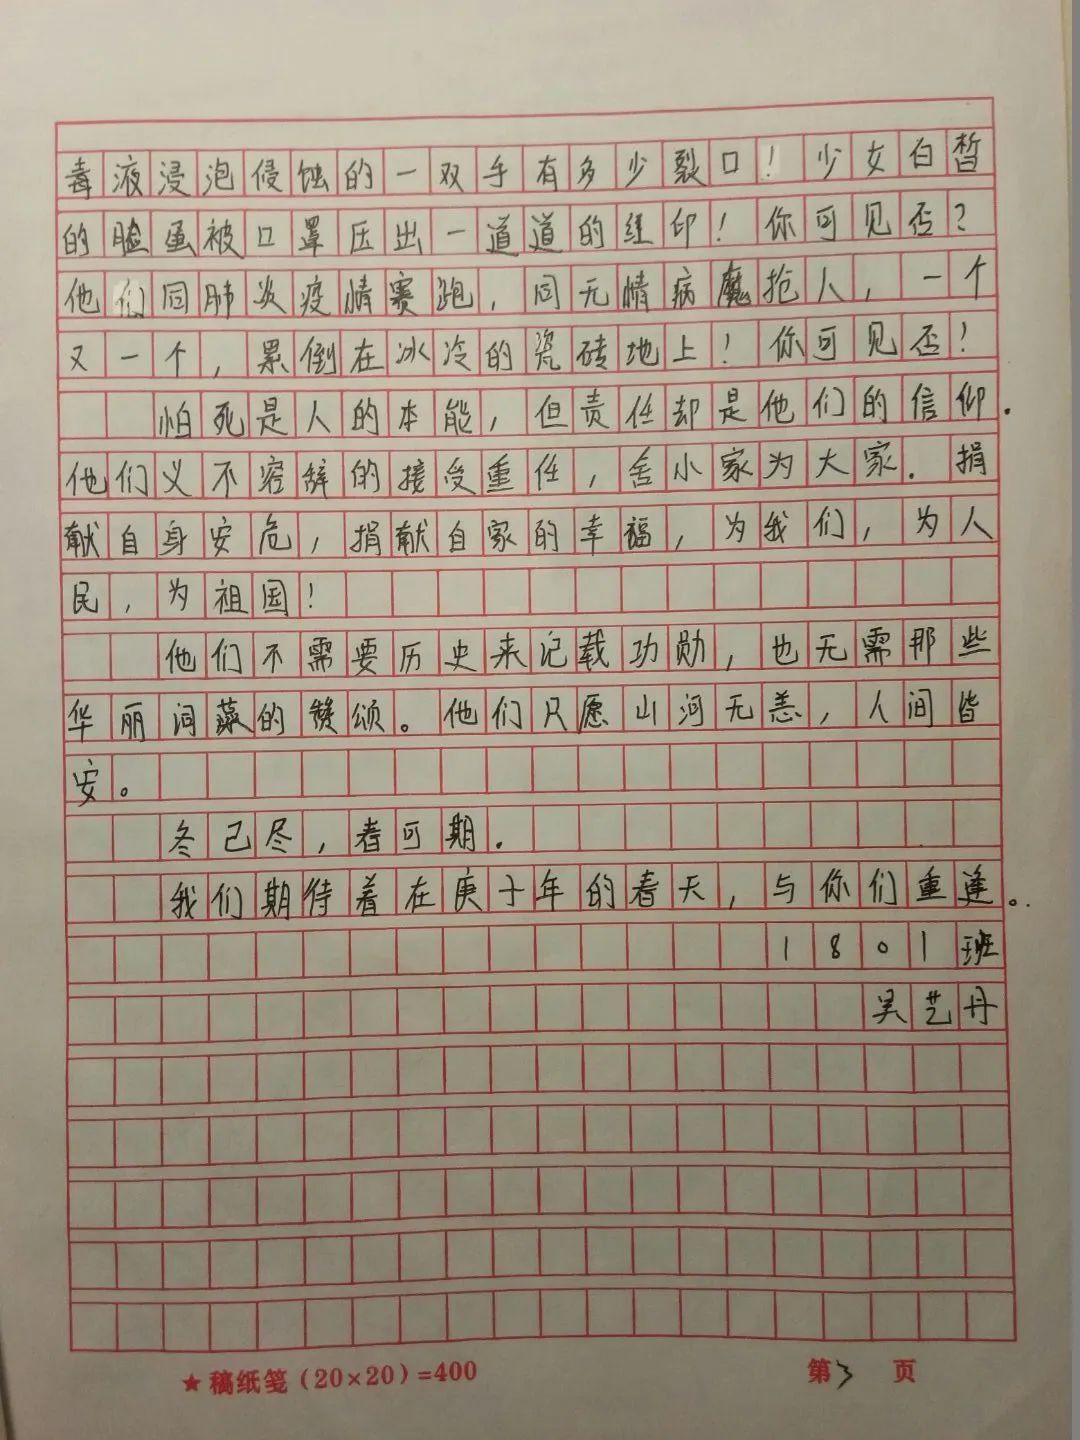 毒液浸泡侵蚀的一双手有多少裂口！少女白皙
的脸蛋被口罩压出一道道的红印！你可见否？
他们同肺炎疫情赛跑，同无情病魔抢人，一个
又一个，累倒在冰冷的瓷砖地上！你可见否！
怕死是人的本能，但责任却是他们的信仰.
他们义不容辞的接受重任，舍小家为大家.捐
献自身安危，捐献自家的幸福，为我们，为人
民，为祖国！
他们不需要历史来记载功勋，也无需那些
华丽词藻的赞颂。他们只愿山河无恙，人间皆
安。
冬已尽，春可期.
我们期待着在庚子年的春天，与你们重逢。
1801班
吴艺丹
★稿纸笺（20×20）=400 第3页